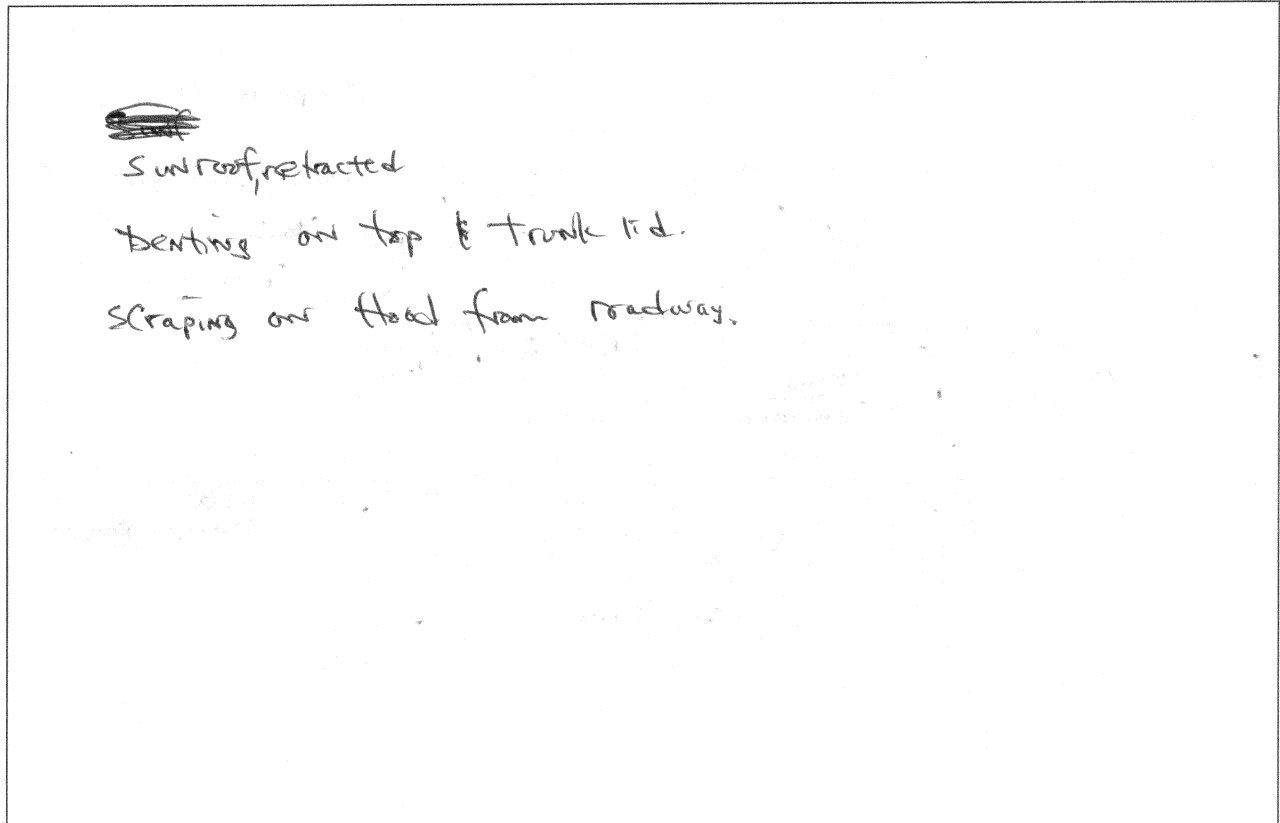 Sunroof, retracted
Denting on top & trunk lid.
Scraping on Hood from roadway.